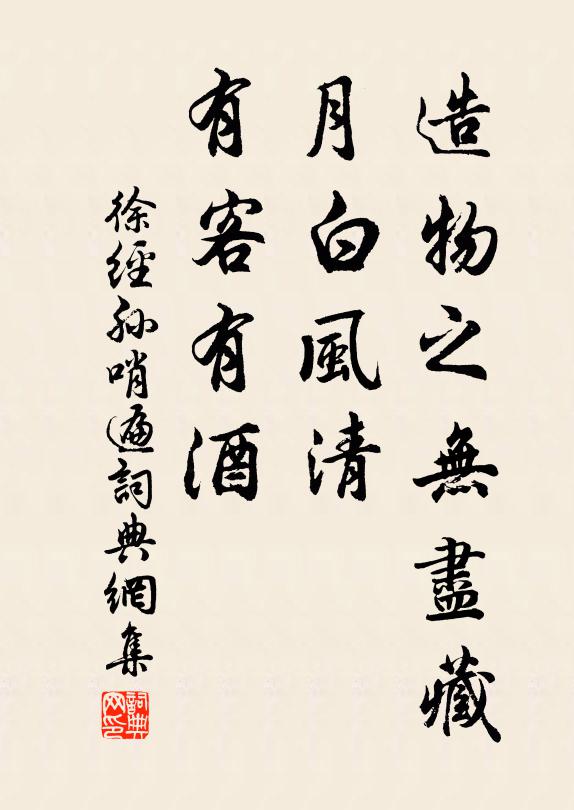 造物之無盡藏
月白風清
有客有酒
徐經孫哨遍詞典網集
詞典網印